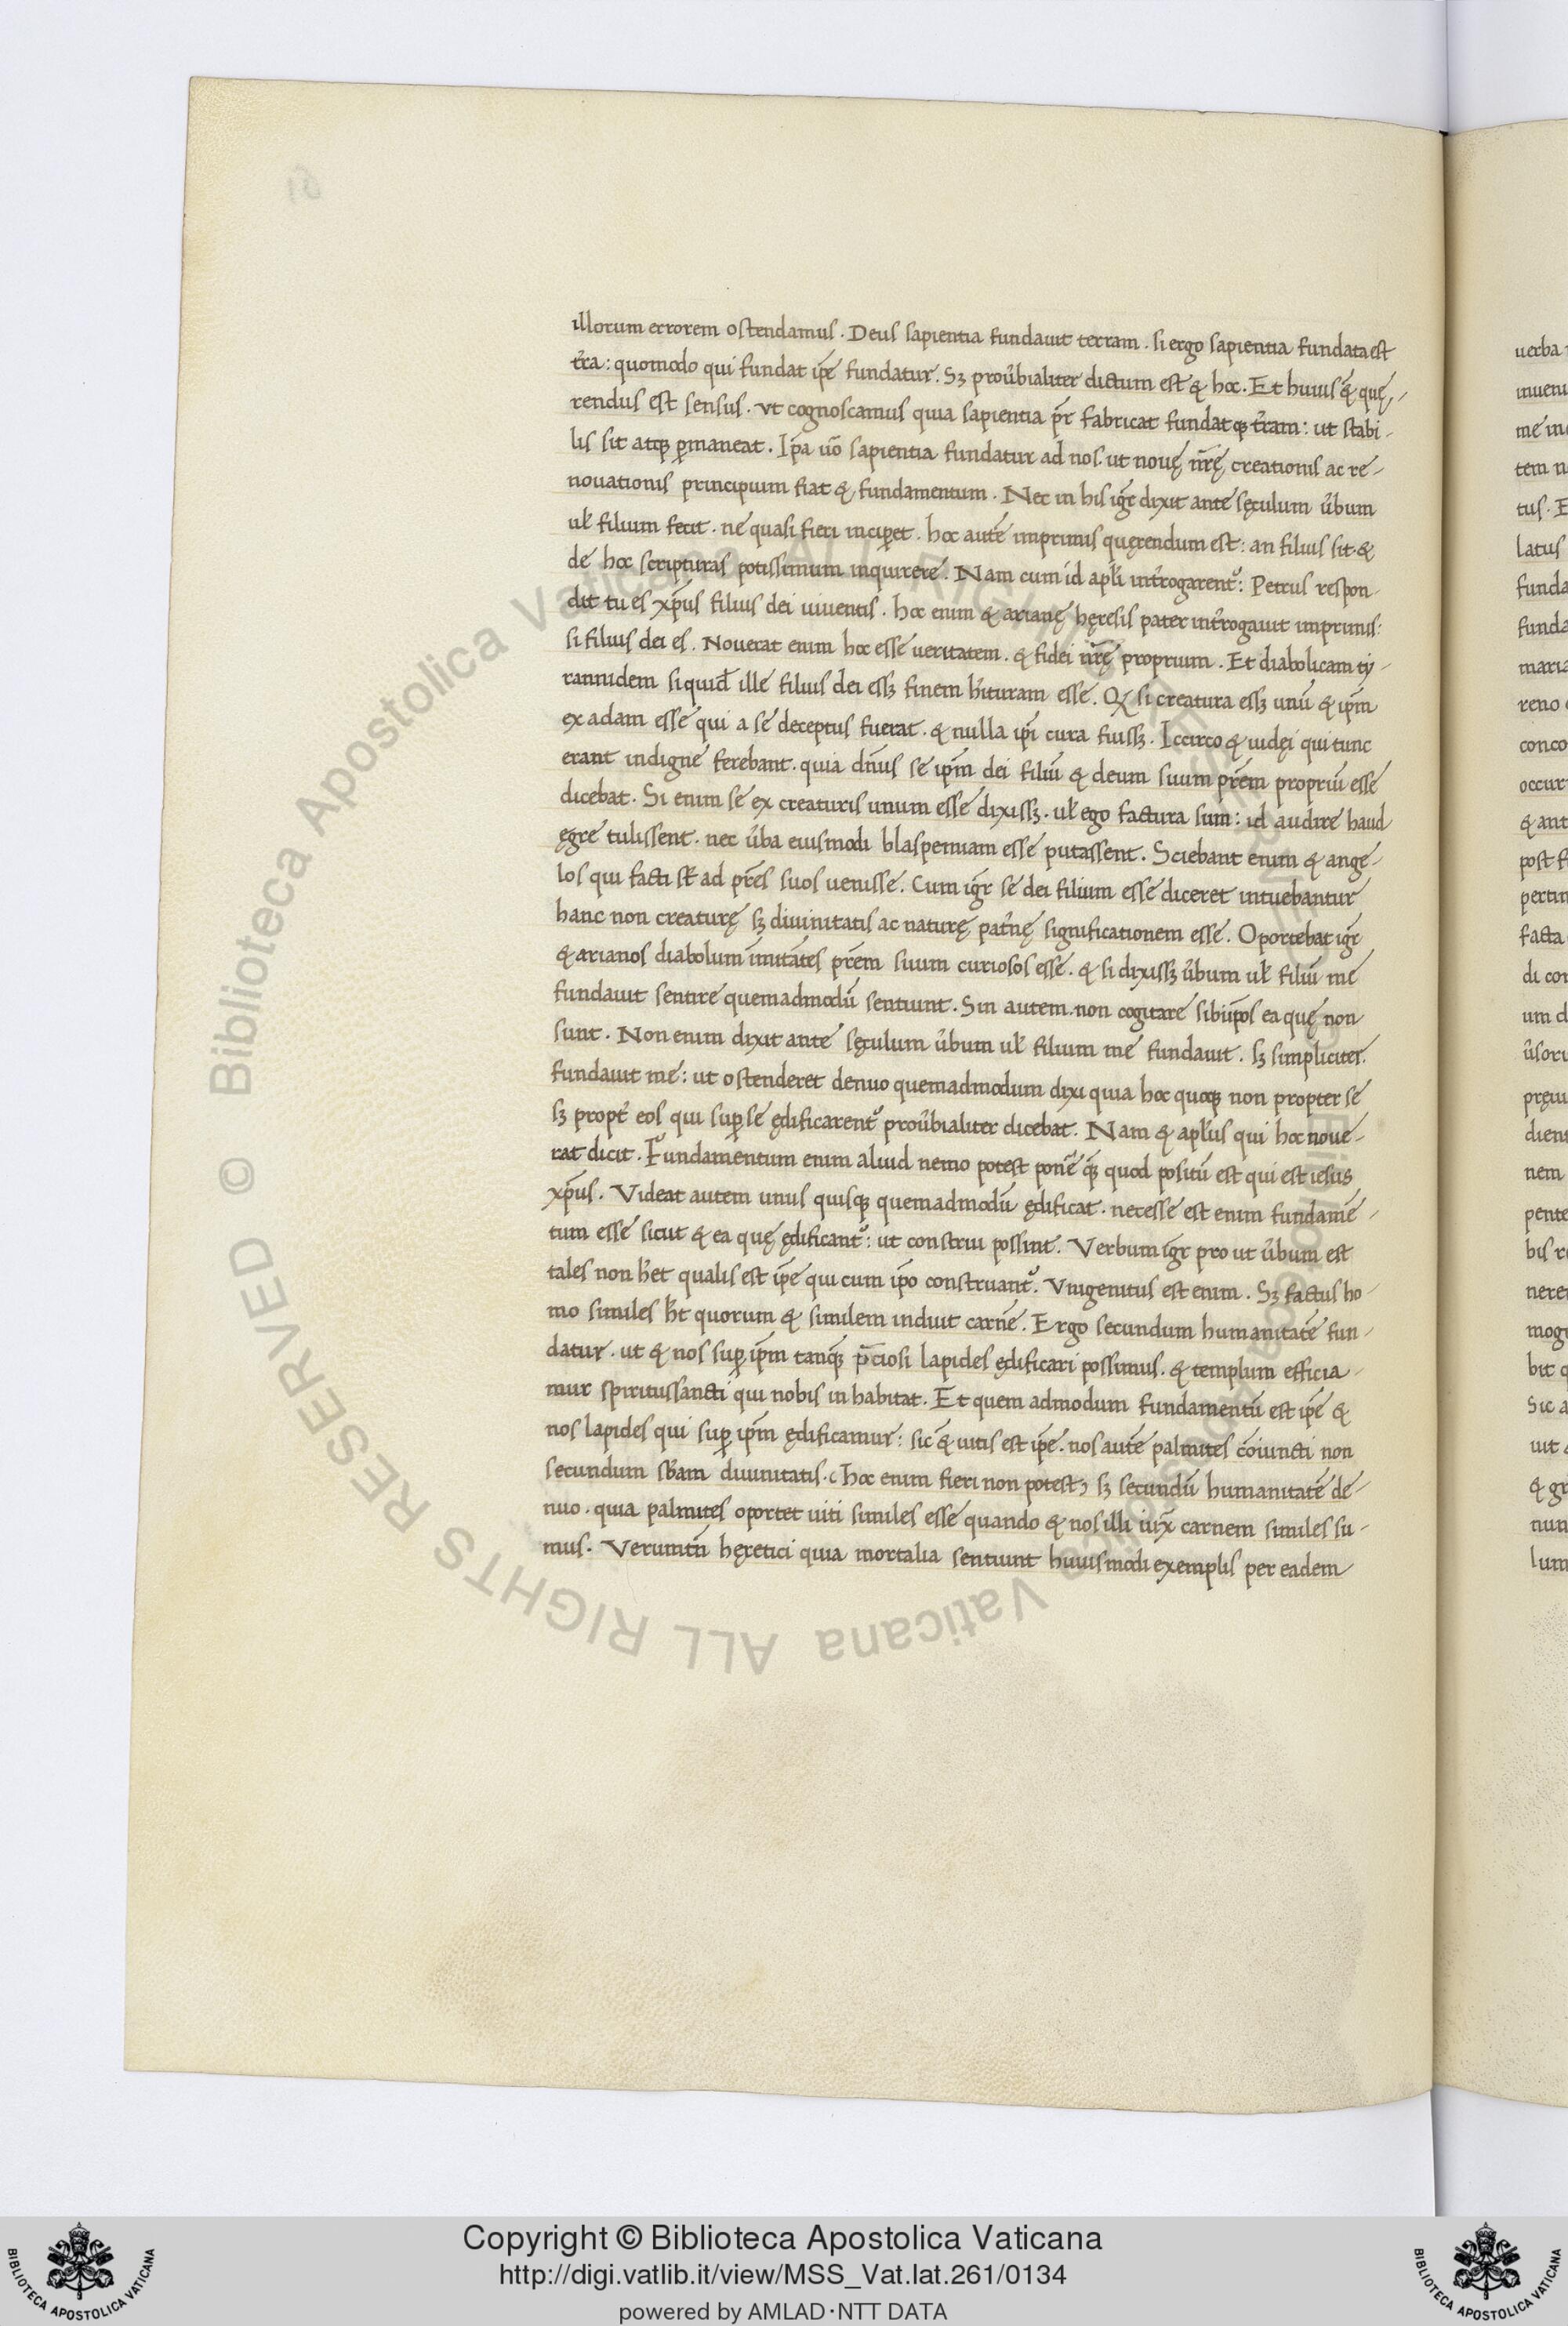 illorum errorem ostendamus. Deus sapientia fundauit terram. si ergo sapientia fundata est
t̄ra: quomodo qui fundat ip̄e fundatur. Sꝫ proūbialiter dictum est & hoc. Et huius & quę,
rendus est sensus. vt cognoscamus quia sapientia p̄r fabricat fundatqꝫ t̄ram: ut stabi-
lis sit atqꝫ ꝑmaneat. Ip̄a uō sapientia fundatur ad nos. ut nouę nr̄ę creationis ac re-
nouationis principium fiat & fundamentum. Nec in his igr̄ dixit ante sęculum ūbum
uł filium fecit. ne quasi fieri inciꝑet. hoc autē imprimis quęrendum est: an filius sit. &
de hoc scripturas potissimum inquirere. Nam cum id apłi int̄rogarent᷑: Petrus respon-
dit tu es xp̄us filius dei uiuentis. hoc enim & arianę hęresis pater int̄rogauit imprimis:
si filius dei es. Nouerat enim hoc esse ueritatem. & fidei nr̄ę proprium. Et diabolicam ty-
rannidem siquid̄ ille filius dei essꝫ finem h̄ituram esse. Qꝫ si creatura essꝫ unū & ip̄m
ex adam esse qui a se deceptus fuerat. & nulla ip̄i cura fuissꝫ. Iccirco & iudęi qui tunc
erant indigne ferebant. quia dn̄us se ip̄m dei filiū & deum suum pr̄em propriū esse
dicebat. Si enim se ex creaturis unum esse dixissꝫ. uł ego factura sum: id audire haud
ęgre tulissent. nec ūba eiusmodi blasphemiam esse putassent. Sciebant enim & ange-
los qui facti st̄ ad pr̄es suos uenisse. Cum igr̄ se dei filium esse diceret intuebantur
hanc non creaturę sꝫ diuinitatis ac naturę pat̄nę significationem esse. Oportebat igr̄
& arianos diabolum imitātes pr̄em suum curiosos esse. & si dixissꝫ ūbum uł filiū me
fundauit sentire quemadmodū sentiunt. Sin autem non cogitare sibiip̄os ea quę non
sunt. Non enim dixit ante sęculum ūbum uł filium me fundauit. sꝫ simpliciter.
fundauit me: ut ostenderet denuo quemadmodum dixi quia hoc quoqꝫ non propter se
sꝫ propt̄ eos qui suꝑ se ędificarent᷑ proūbialiter dicebat. Nam & apłus qui hoc noue-
rat dicit. Fundamentum enim aliud nemo potest ponē̄ qꝫ quod positū est qui est iesus
xp̄us. Videat autem unus quisqꝫ quemadmodū ędificat. necesse est enim fundamē-
tum esse sicut & ea quę ędificant᷑: ut construi possint. Verbum igr̄ pro ut ūbum est
tales non h̄et qualis est ip̄e qui cum ip̄o construant᷑. Vnigenitus est enim. Sꝫ factus ho-
mo similes h̄t quorum & similem induit carnē. Ergo secundum humanitatē fun-
datur. ut & nos suꝑ ip̄m tanqꝫ p̄ciosi lapides ędificari possimus. & templum efficia-
mur spiritussancti qui nobis in habitat. Et quem admodum fundamentū est ip̄e &
nos lapides qui suꝑ ip̄m ędificamur: sic & uitis est ip̄e. nos autē palmites cōiuncti non
secundum sb̄am diuinitatis. (hoc enim fieri non potest) sꝫ secundū humanitatē de-
nuo. quia palmites oportet uiti similes esse quando & nos illi iux̄ carnem similes su-
mus. Verumtn̄ hęretici quia mortalia sentiunt huiusmodi exemplis per eadem
Copyright © Biblioteca Apostolica Vaticana
http://digi.vatlib.it/view/MSS_Vat.lat.261/0134
powered by AMLAD·NTT DATA